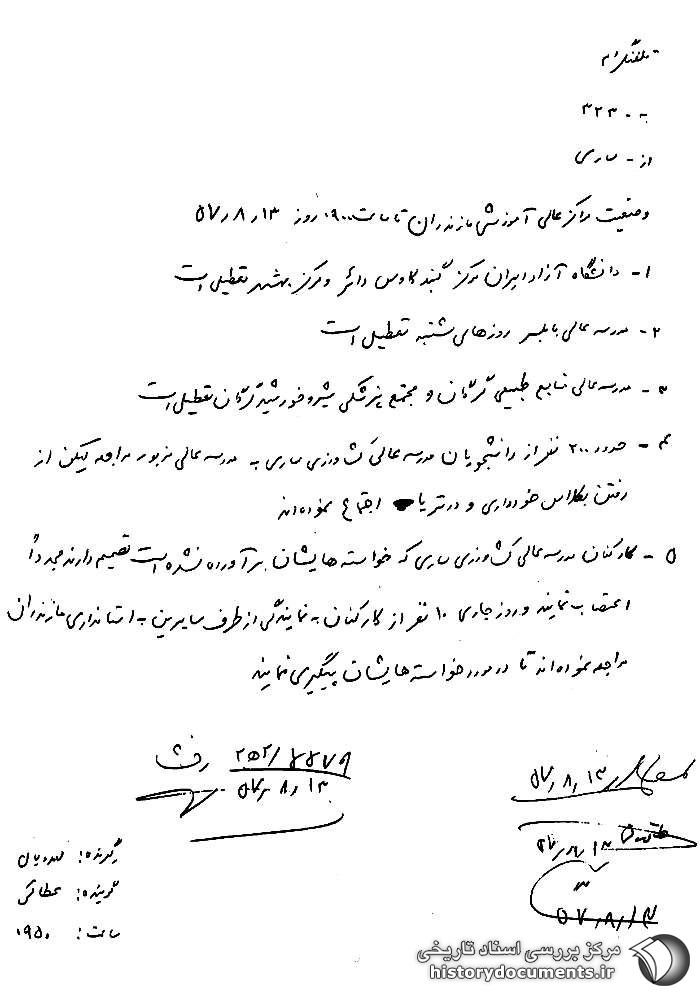 تلگرام
به - ۳۲۳
از - ساری
وضعیت مراکز عالی آموزشی مازندران تا ساعت ۰۹۰۰ روز ۵۷٫۸٫۱۳
۱- دانشگاه آزاد ایران مرکز گنبد کاوس دائر و مرکز بهشهر تعطیل است
۲- مدرسه عالی بابلسر روزهای شنبه تعطیل است
۳- مدرسه عالی منابع طبیعی گرگان و مجتمع پزشکی شیر و خورشید گرگان تعطیل است
۴- حدود ۲۰۰ نفر از دانشجویان مدرسه عالی کشاورزی ساری به مدرسه عالی مزبور مراجعه لیکن از
رفتن بکلاس خودداری و در تریا اجتماع نموده‌اند
۵- کارکنان مدرسه عالی کشاورزی ساری که خواسته‌هایشان برآورده نشده است تصمیم دارند مجدداً
اعتصاب نمایند و روز جاری ۱۰ نفر از کارکنان به نمایندگی از طرف سایرین به استانداری مازندران
مراجعه نموده‌اند تا در مورد خواسته‌هایشان پیگیری نمایند
۵۷٫۸٫۱۳
۵۷٫۸٫۱۳
گیرنده:
گوینده: عطائی
ساعت: ۰۹۵۰
۵۷٫۸٫۱۳
۳
مرکز بررسی اسناد تاریخی
historydocuments.ir